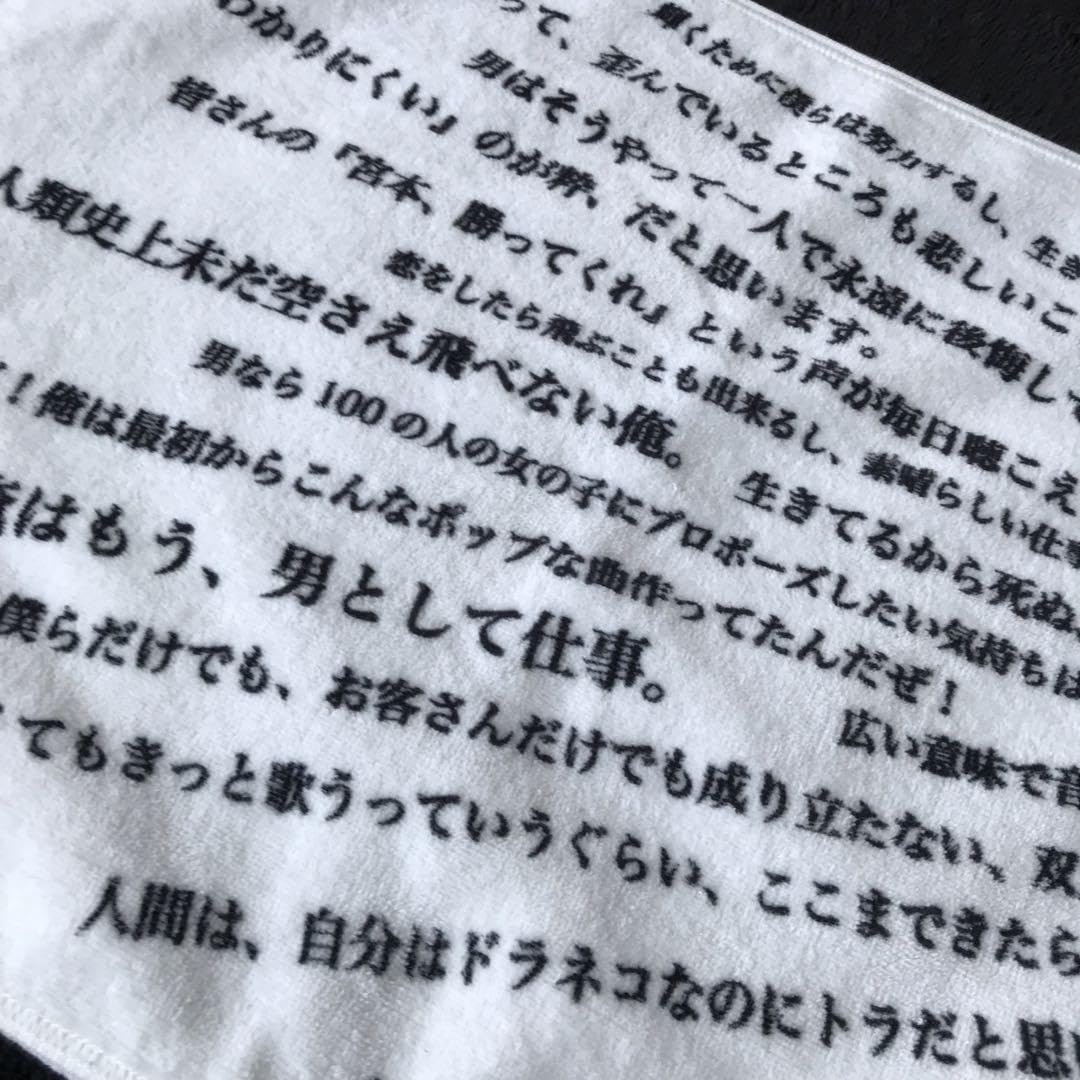 輝くために僕らは努力するし、生き
って、歪んでいるところも悲しいこ
男はそうやって一人で永遠に後悔して
わかりにくい』のが粋、だと思います。
皆さんの『宮本、勝ってくれ』という声が毎日聴こえ
恋をしたら飛ぶことも出来るし、素晴らしい仕事
人類史上未だ空さえ飛べない俺。 生きてるから死ぬ、
男なら100の人の女の子にプロポーズしたい気持ちは
！俺は最初からこんなポップな曲作ってたんだぜ！
はもう、男として仕事。 広い意味で音
僕らだけでも、お客さんだけでも成り立たない、双
てもきっと歌うっていうぐらい、ここまできたら
人間は、自分はドラネコなのにトラだと思